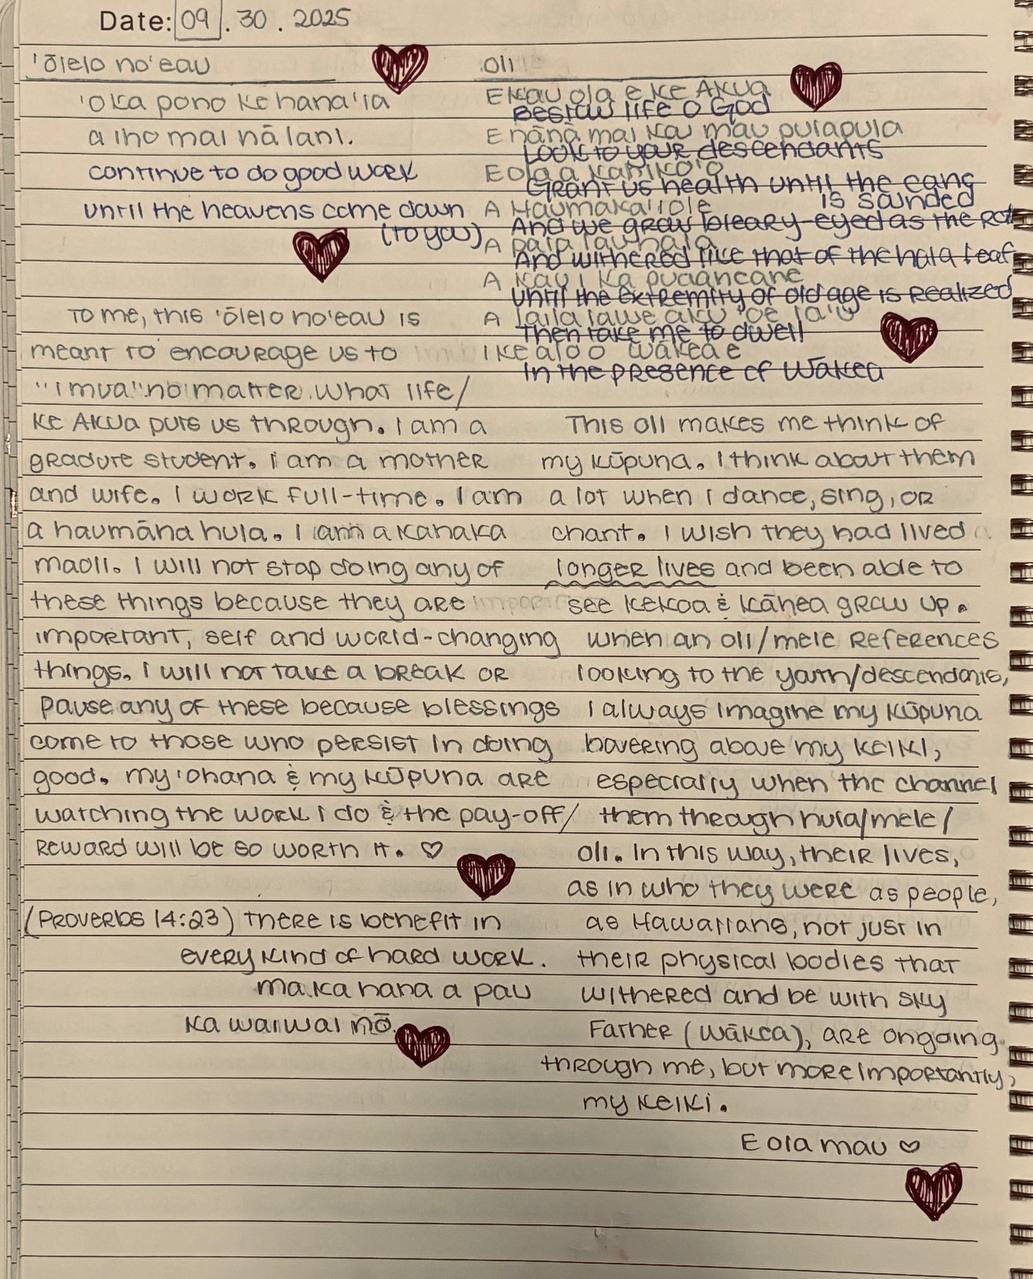 Date: 09 . 30 . 2025
'ōlelo no'eau
'oka pono ke hana 'ia
a iho mai nā lani.
continue to do good work
until the heavens come down
(to you)
To me, this 'ōlelo no'eau is
meant to encourage us to
"imua" no matter what life/
Ke Akua puts us through. I am a
gradute student. I am a mother
and wife. I work full-time. I am
a haumāna hula. I am a kanaka
maoli. I will not stop doing any of
these things because they are
important, self and world-changing
things. I will not take a break or
pause any of these because blessings
come to those who persist in doing
good. my 'ohana & my kūpuna are
watching the work I do & the pay-off/
reward will be so worth it. ♡
(Proverbs 14:23) There is benefit in
every kind of hard work.
ma ka hana a pau
ka waiwai nō.
oli
E Kau ola e ke Akua
Bestow life o God
E nānā mai kau mau pulapula
Look to your descendants
E ola a
Grant us health until the cane
is sounded
A Haumaka'iole
And we grow bleary-eyed as the rat
A pala lauhala
And withered like that of the hala leaf
A kau i ka puaaneane
Until the extremity of old age is realized
A laila lawe aku 'oe ia'u
Then take me to dwell
I ke alo o Wākea e
In the presence of Wākea
This oli makes me think of
my kūpuna. I think about them
a lot when I dance, sing, or
chant. I wish they had lived
longer lives and been able to
see Kekoa & Kānea grow up.
when an oli/mele references
looking to the youth/descendants,
I always imagine my kūpuna
hovering above my keiki,
especially when the channel
them through hula/mele/
oli. In this way, their lives,
as in who they were as people,
as Hawaiians, not just in
their physical bodies that
withered and be with sky
Father (Wākea), are ongoing
through me, but more importantly,
my keiki.
E ola mau ♡